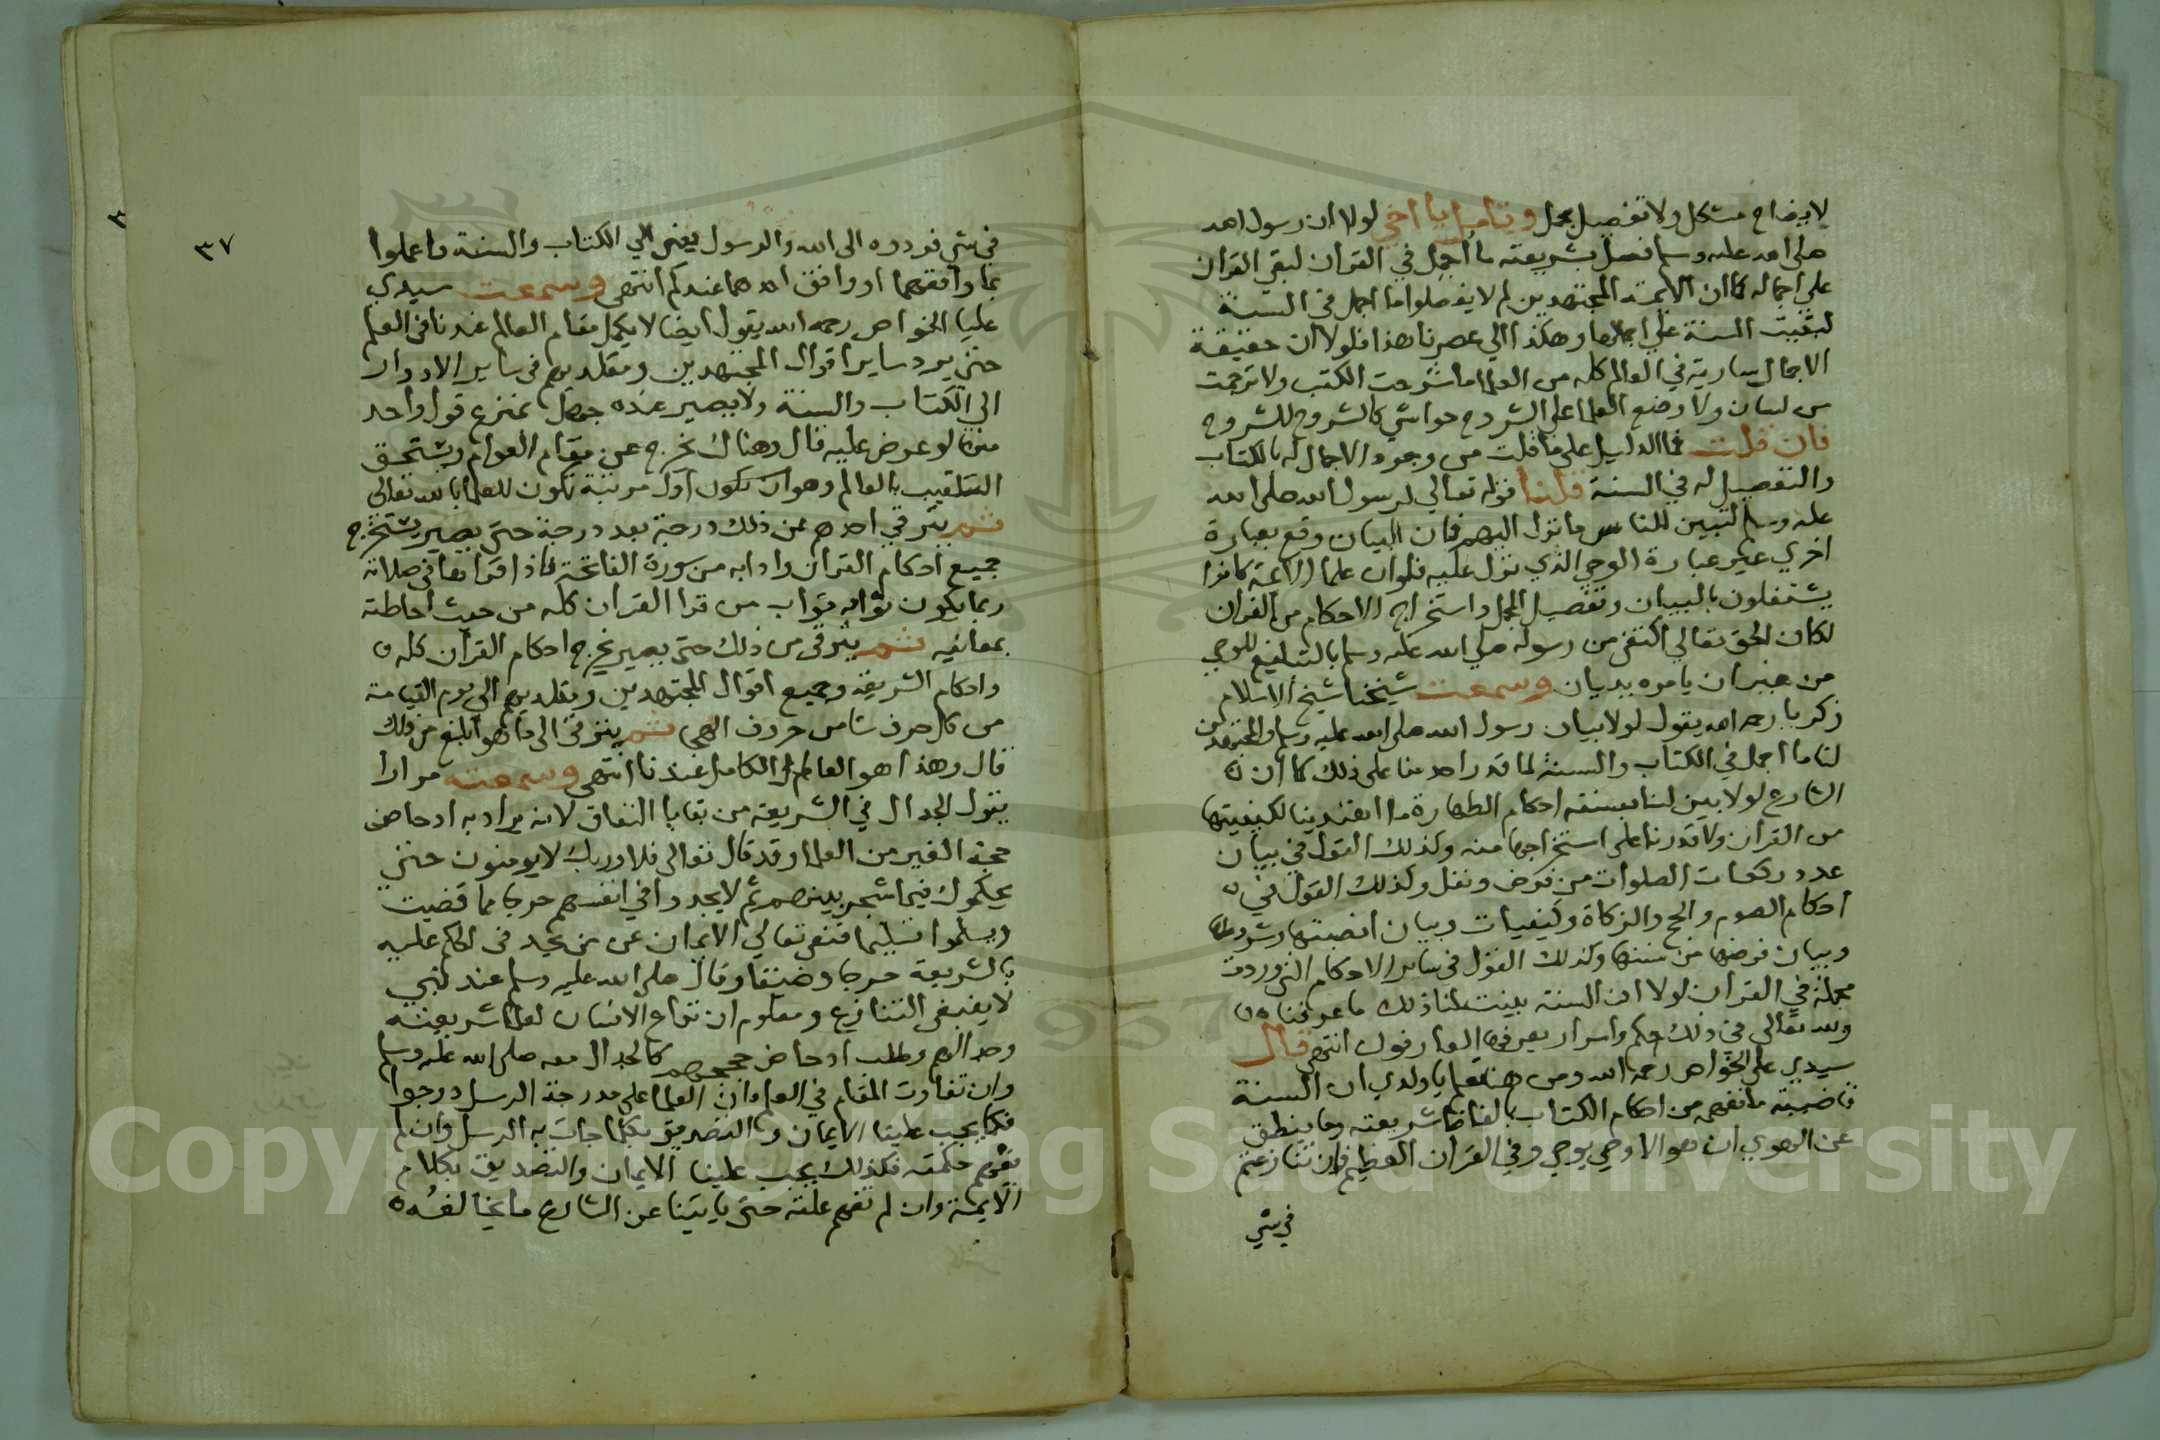 لايضاح مشكل ولا تفصيل مجمل وتامل يا اخي لولا ان رسول الله
صلى الله عليه وسلم فصل بشريعته ما اجمل في القران لبقي القران
علي اجماله كما ان الايمة المجتهدين لو لم يفصلوا ما اجمل في السنة
لبقيت السنة علي اجمالها وهكذا الي عصرنا هذا فلولا ان حقيقة
الاجمال سارية في العالم كله من العلما ما شرحت الكتب ولا ترجمت
من لسان ولا وضع العلما على الشروح حواشي كالشروح للشروح
فان قلت فما الدليل على ما قلت من وجود الاجمال له بالكتاب
والتفصيل له في السنة قلنا قوله تعالي لرسول الله صلى الله
عليه وسلم لتبين للناس ما نزل اليهم فان البيان وقع بعبارة
اخري غير عبارة الوحي الذي نزل عليه فلو ان علما الامة كانوا
يشتغلون بالبيان وتفصيل المجمل واستخراج الاحكام من القران
لكان الحق تعالي اكتفى من رسوله صلي الله عليه وسلم بالتبليغ للوحي
من غير ان يامره ببيان وسمعت شيخنا شيخ الاسلام
زكريا رحمه الله يقول لولا بيان رسول الله صلى الله عليه وسلم والمجتهدين
لنا ما اجمل في الكتاب والسنة لما قدر احد منا على ذلك كما ان
الشارع لولا بين لنا بسنته احكام الطهارة ما اهتدينا لكيفيتها
من القران ولا قدرنا على استخراجها منه وكذلك القول في بيان
عدد ركعات الصلوات من فرض ونفل وكذلك القول في
احكام الصوم والحج والزكاة وكيفيات وبيان انصبتها وشروطها
وبيان فرضها من سننها وكذلك القول في ساير الاحكام التي وردت
مجملة في القران لولا ان السنة بينت لنا ذلك ما عرفناه
ولله تعالى في ذلك حكم واسرار يعرفها العارفون انتهى قال
سيدي علي الخواص رحمه الله ومن هنا تعلم يا ولدي ان السنة
قاضية ما نفهمه من احكام الكتاب بالفاظ شريعته وما ينطق
عن الهوي ان هو الا وحي يوحي وفي القران العظيم فان تنازعتم
في شي
٣٧
في شي فردوه الى الله والرسول يعني الي الكتاب والسنة واعملوا
بما وافقهما او وافق احدهما عندكم انتهى وسمعت سيدي
عليا الخواص رحمه الله يقول ايضا لا يكمل مقام العالم عندنا في العلم
حتى يرد ساير اقوال المجتهدين ومقلديهم في ساير الادوار
الي الكتاب والسنة ولا يصير عنده جهل بمنزع قول واحد
منها لو عرض عليه قال وهناك يخرج عن مقام العوام ويستحق
التلقيب بالعالم وهو ان تكون اول مرتبة تكون للعلما بالله تعالى
ثم يترقي احدهم عن ذلك درجة بعد درجة حتى يصير يستخرج
جميع احكام القران وادابه من سورة الفاتحة فاذا قراها في صلاته
ربما يكون ثوابه ثواب من قرا القران كله من حيث احاطته
بمعانيه ثم يترقى من ذلك حتى يصير يخرج احكام القران كله
واحكام الشريعة وجميع اقوال المجتهدين ومقلديهم الي يوم القيامة
من كل حرف شا من حروف الهجي ثم يترقى الى ما هو ابلغ من ذلك
قال وهذا هو العالم الكامل عندنا انتهى وسمعته مرارا
يقول الجدال في الشريعة من بقايا النفاق لانه يراد به ادحاض
حجة الغير من العلما وقد قال تعالى فلا وربك لا يومنون حتى
يحكموك فيما شجر بينهم ثم لا يجدوا في انفسهم حرجا مما قضيت
ويسلموا تسليما فنفى تعالي الايمان عن من يجد في الحكم عليه
بالشريعة حرجا وضيقا وقال صلى الله عليه وسلم عند نبي
لا ينبغي التنازع ومعلوم ان نزاع الانسان لعلما شريعته
وجدالهم وطلب ادحاض حججهم كالجدال معه صلى الله عليه وسلم
وان تفاوت المقام في العلم فان العلما على مدرجة الرسل درجوا
فكما يجب علينا الايمان والتصديق بكلما جات به الرسل وان لم
نفهم حكمته فكذلك يجب علينا الايمان والتصديق بكلام
الايمة وان لم نفهم علته حتى ياتينا عن الشارع ما يخالفه
Copyright © King Saud University
1957